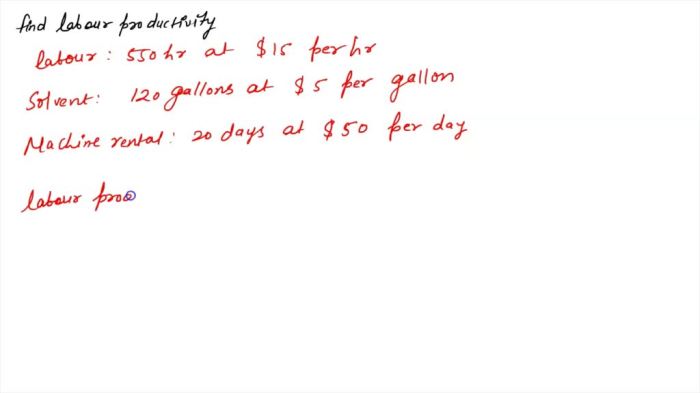 find labour productivity
labour : 550 hr at $15 per hr
Solvent: 120 gallons at $5 per gallon
Machine rental: 20 days at $50 per day
labour prod